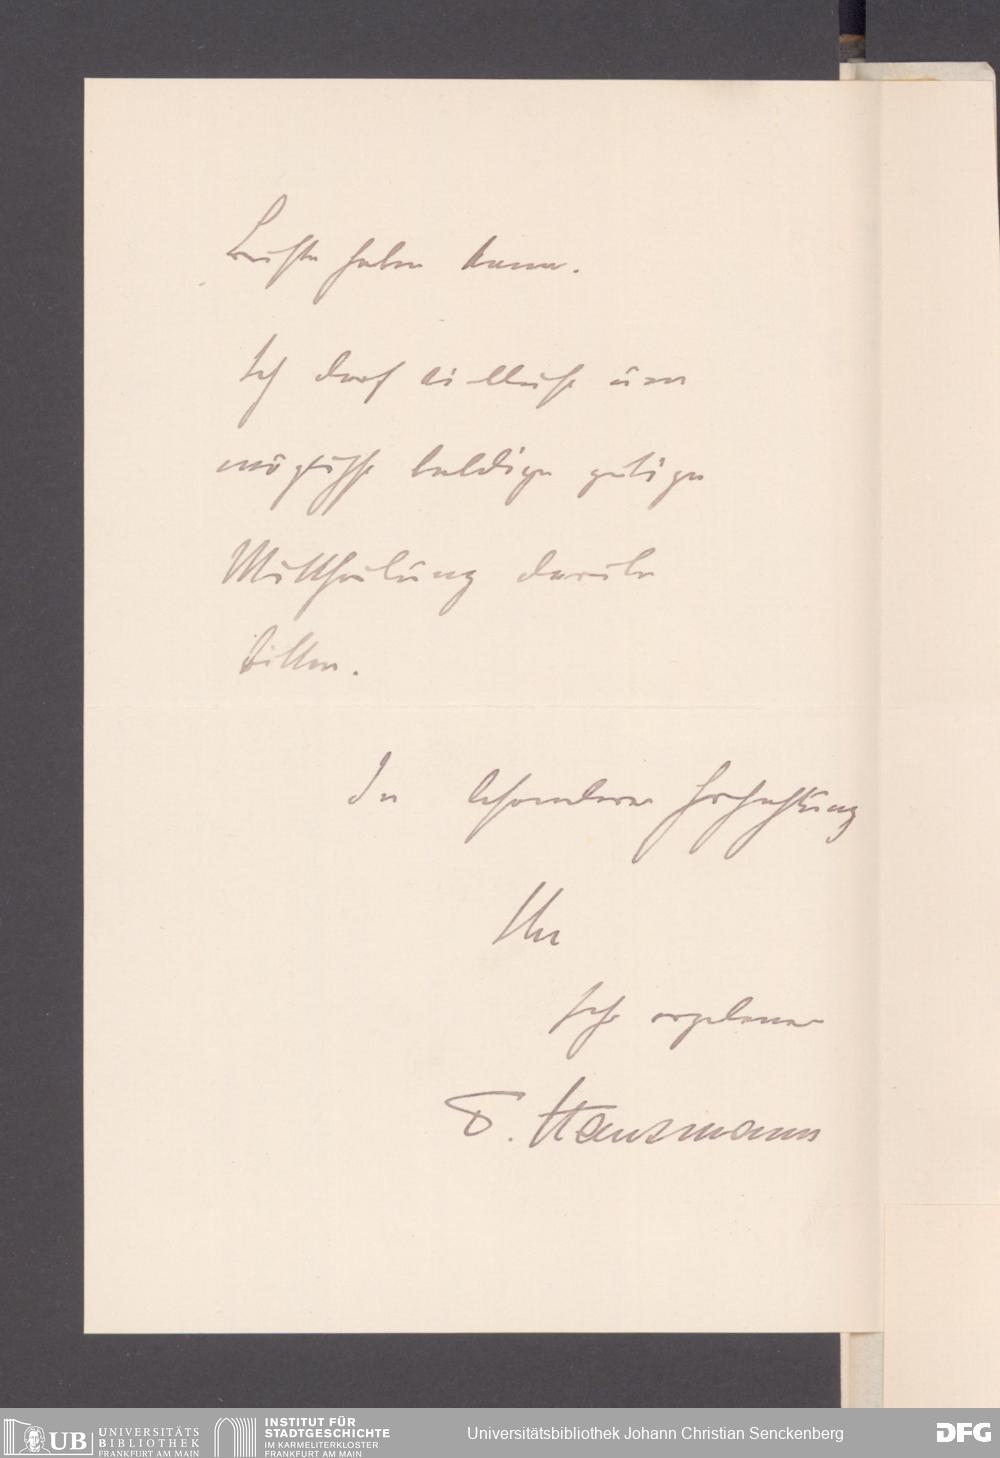 haben kann.
Ich darf vielleicht um
möglichst baldige gütige
Mittheilung darüber
bitten.
In besonderer Hochachtung
Ihr
sehr ergebener
Hausmann
UB UNIVERSITÄTS
BIBLIOTHEK
FRANKFURT AM MAIN
INSTITUT FÜR
STADTGESCHICHTE
IM KARMELITERKLOSTER
FRANKFURT AM MAIN
Universitätsbibliothek Johann Christian Senckenberg
DFG